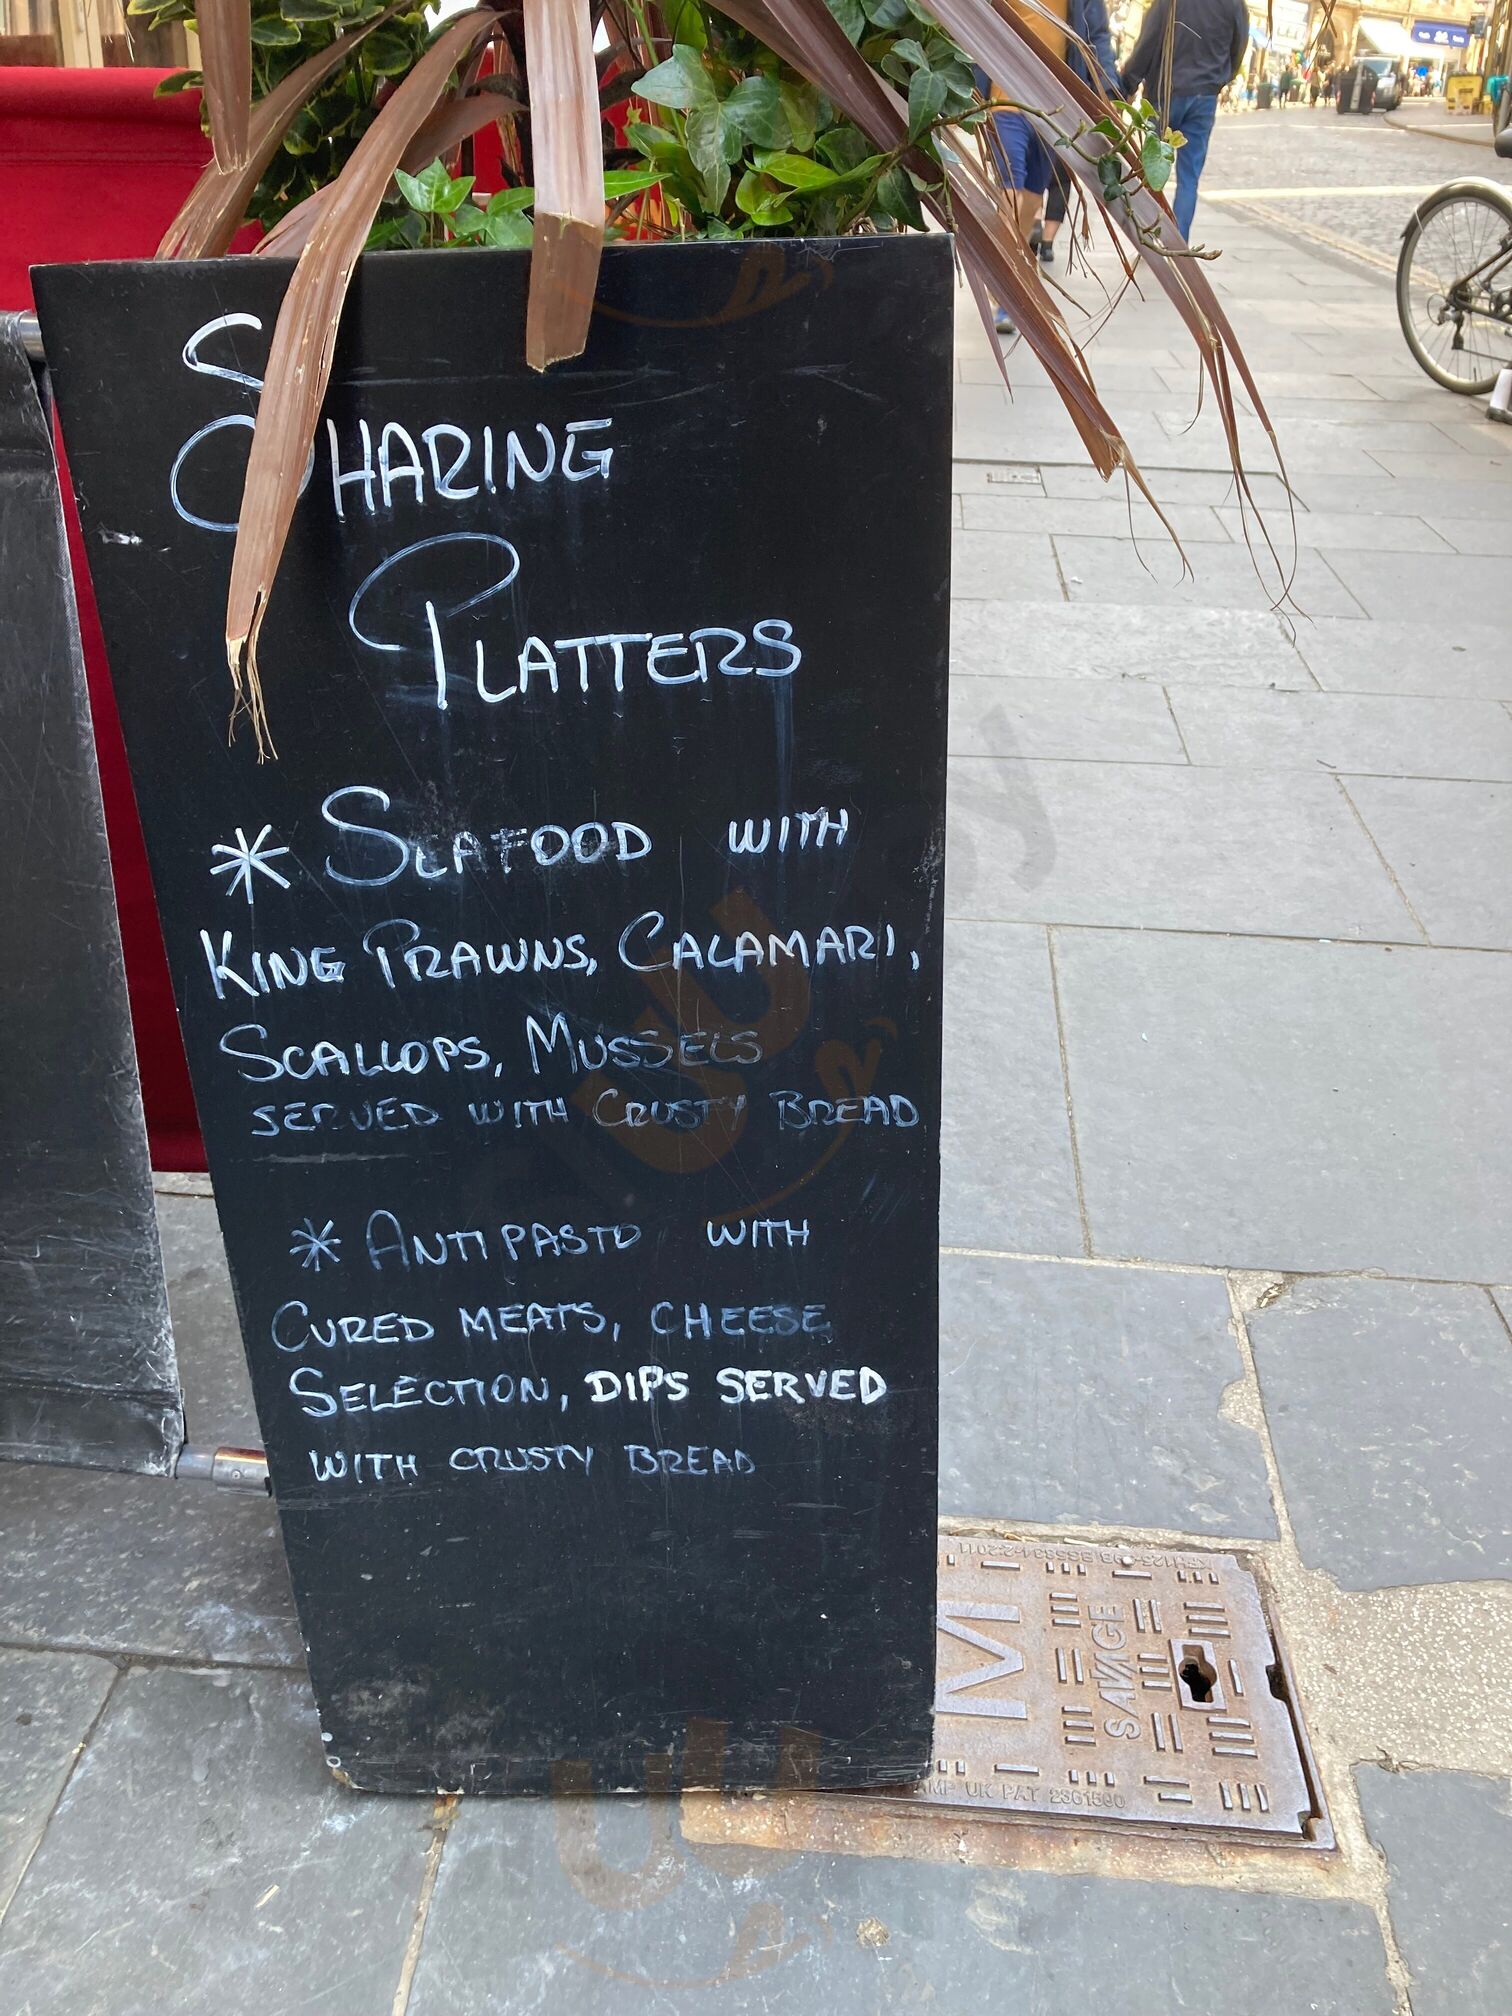 SHARING
PLATTERS
* SEAFOOD WITH
KING PRAWNS, CALAMARI,
SCALLOPS, MUSSELS
SERVED WITH CRUSTY BREAD
* ANTIPASTO WITH
CURED MEATS, CHEESE
SELECTION, DIPS SERVED
WITH CRUSTY BREAD
M
SAVAGE
UK PAT 2361500